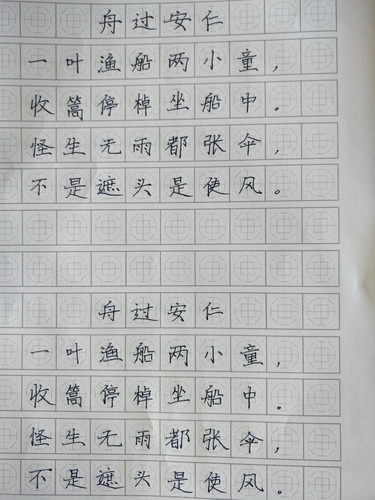 舟过安仁
一叶渔船两小童，
收篙停棹坐船中。
怪生无雨都张伞，
不是遮头是使风。
舟过安仁
一叶渔船两小童，
收篙停棹坐船中.
怪生无雨都张伞，
不是遮头是使风。